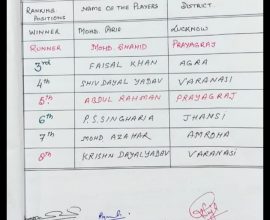 RANKING POSITIONS NAME OF THE PLAYERS DISTRICT
WINNER MOHD. ARIF LUCKNOW
RUNNER MOHD. SHAHID PRAYAGRAJ
3rd FAISAL KHAN AGRA
4th SHIV DAYAL YADAV VARANASI
5th ABDUL RAHMAN PRAYAGRAJ
6th P.S. SINGHARIA JHANSI
7th MOHD AZAHAR AMROHA
8th KRISHN DAYAL YADAV VARANASI